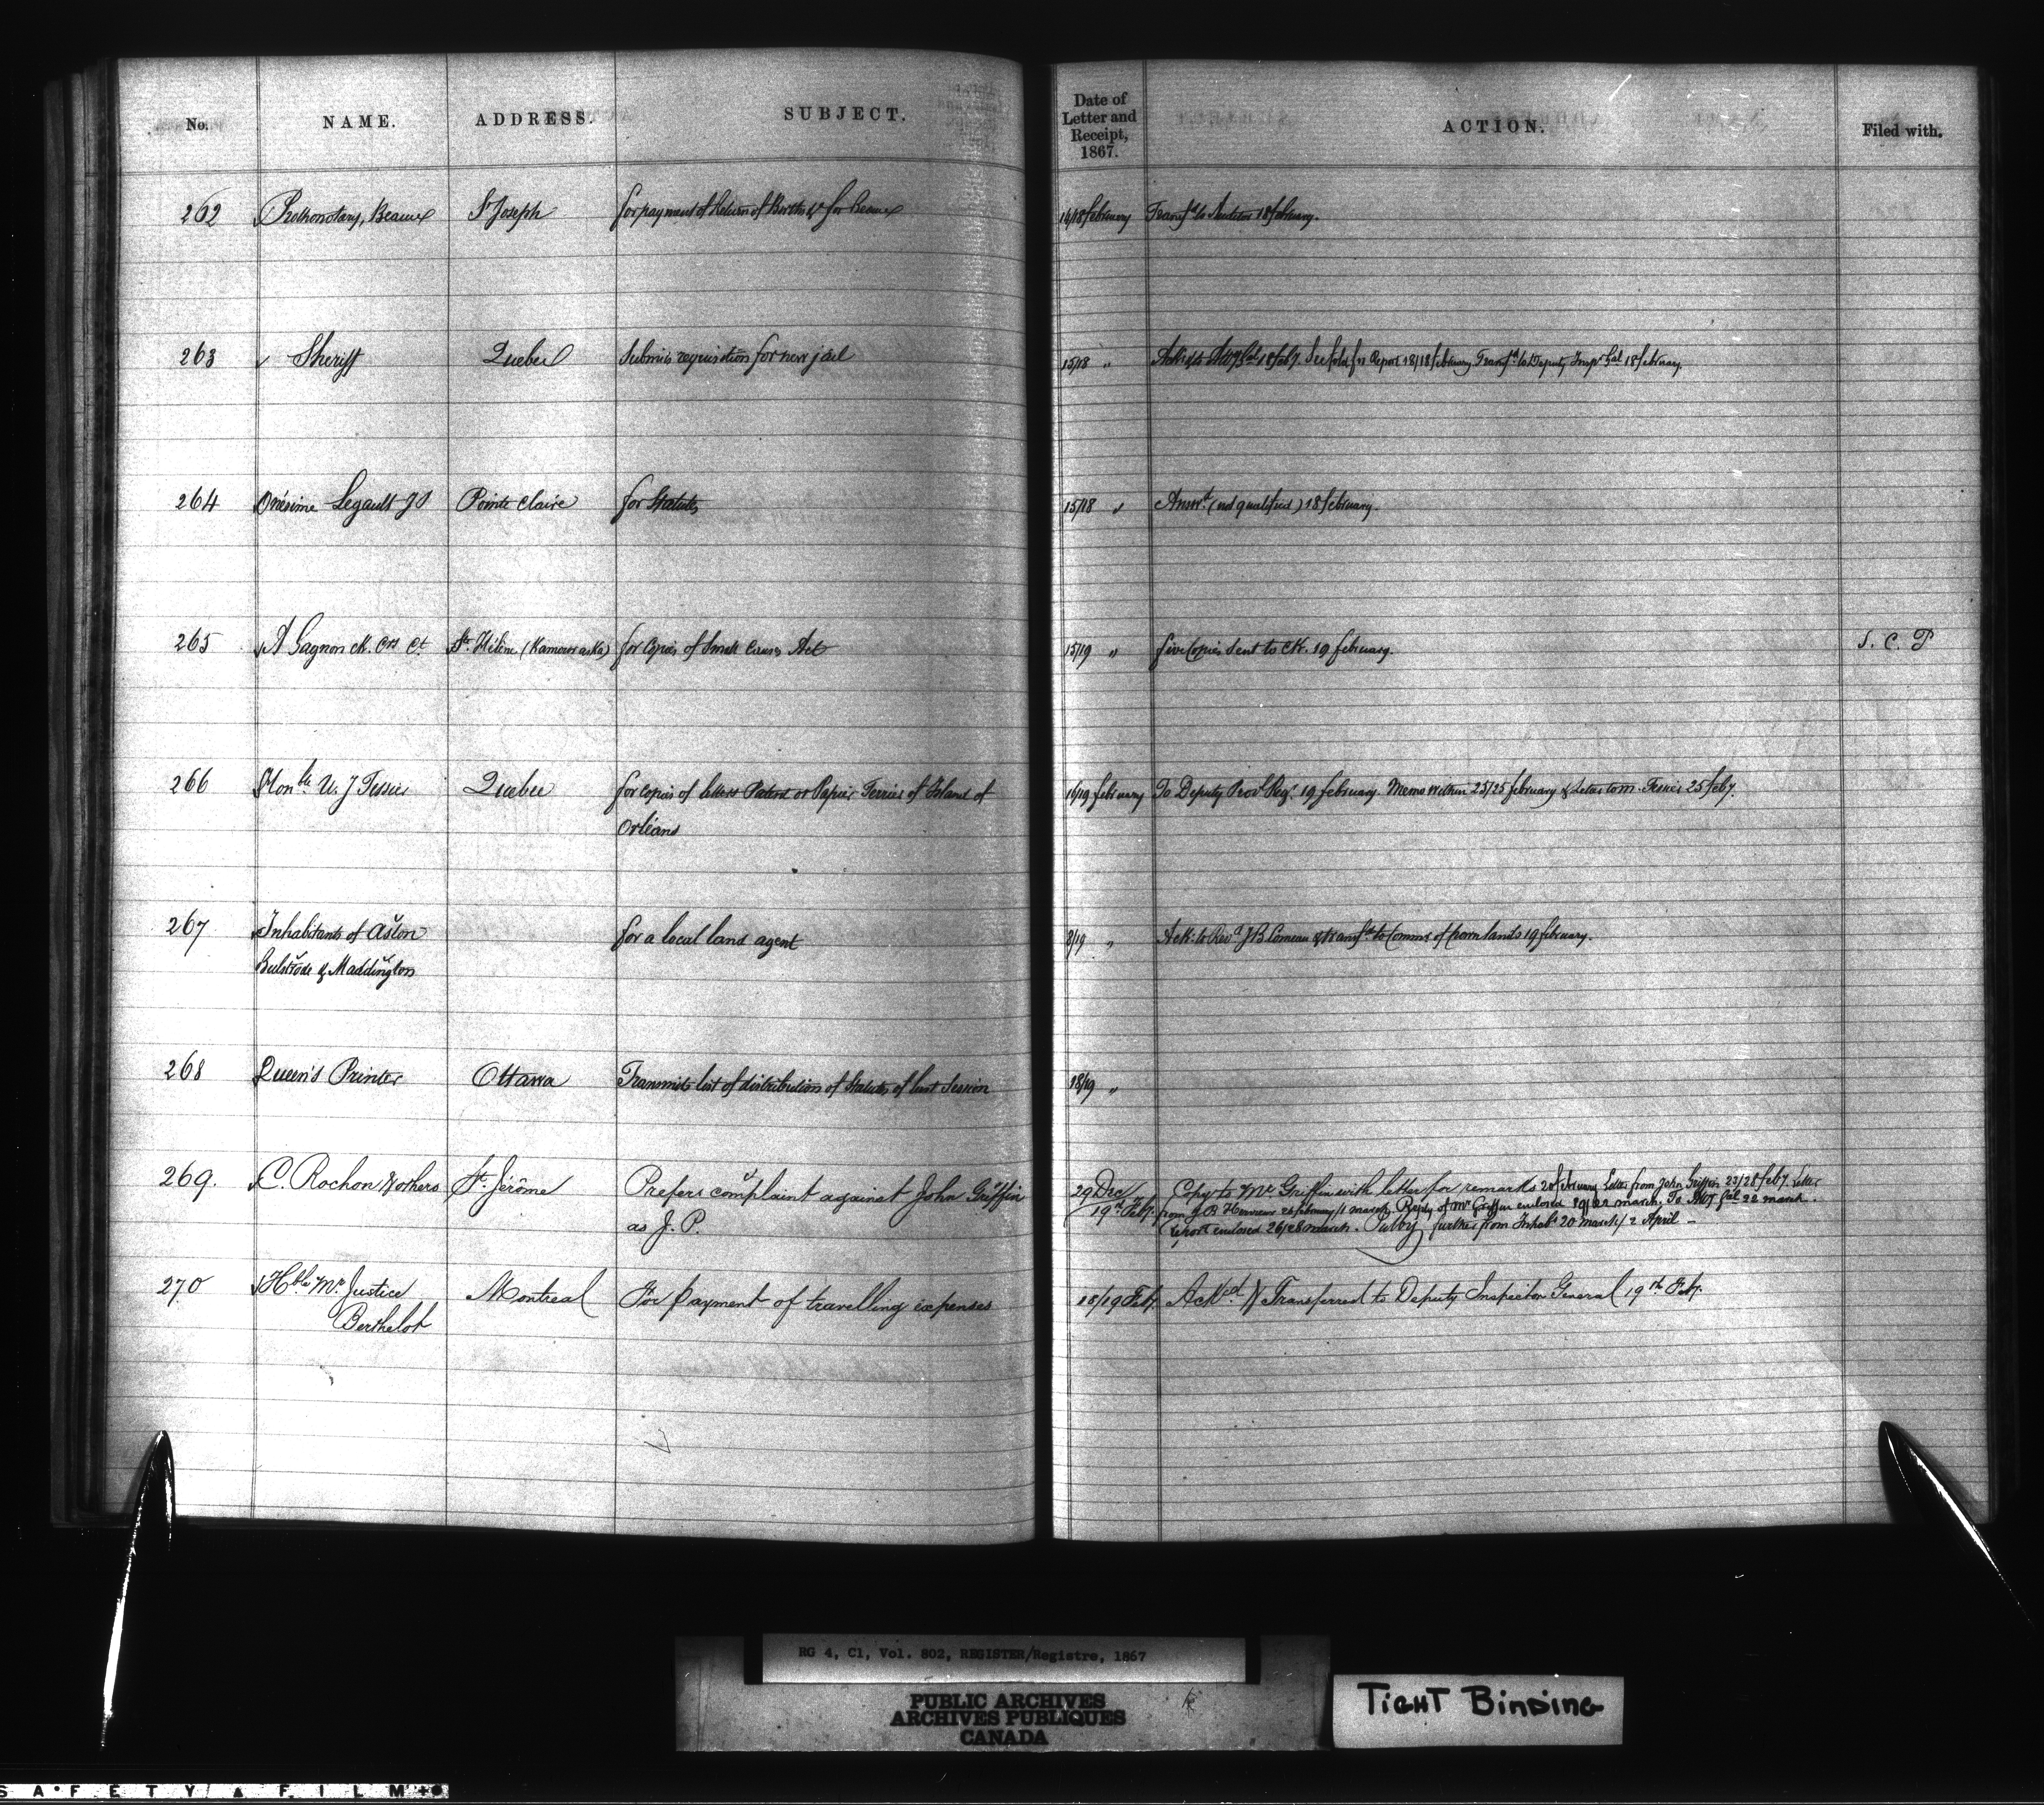 No. NAME. ADDRESS. SUBJECT. Date of Letter and Receipt, 1867. ACTION. Filed with.
262 Prothonotary, Beauce St Joseph for payment of Return of Births &c for Beauce 16/18 february Transfd to Auditor 18 february.
263 Sheriff Quebec Submits requisition for new jail 15/18 " 18 feby. Report 18/18 february Transfd to Deputy Inspr Gal 18 february.
264 Onésime Legault JP Pointe Claire for Statutes 15/18 " Answd (not qualified) 18 february.
265 A Gagnon ck Crs Ct Ste Hélène (Kamouraska) for Copies of Small Causes Act 15/19 " five Copies sent to Ck. 19 february. S. C. P
266 Honble U. J Tessier Quebec for copies of letters Patent or Papier Terrier of Island of 16/19 february To Deputy Provl Regr 19 february. Memo within 25/25 february & Letter to M. Tessier 25 feby.
Orléans
267 Inhabitants of Aston for a local land agent 8/19 " Ack: to Revd J B Comeau & transfd to Commr of Crown lands 19 february.
Bulstrode & Maddington
268 Queen's Printer Ottawa Transmits list of distribution of Statutes of last Session 18/19 "
269. C. Rochon & others St. Jérôme Prefers complaint against John Griffin 29 Dec Copy to Mr Griffin with letter for remarks 20 february Letter from John Griffin 23/28 feby. Letter
as J. P. 19th Feby. from J. B. 26 february/1 march. Reply of Mr Griffin enclosed 22 march. To Atty Gal 22 march.
Report enclosed 26/28 march. further from Inhabts 20 march/2 April —
270 Hble Mr Justice Montreal For payment of travelling expenses 18/19 Feby. Ackd & Transferred to Deputy Inspector General 19th Feby.
Berthelot
RG 4, C1, Vol. 802, REGISTER/Registre, 1867
PUBLIC ARCHIVES
ARCHIVES PUBLIQUES
CANADA
TIGHT BINDING
SAFETY FILM